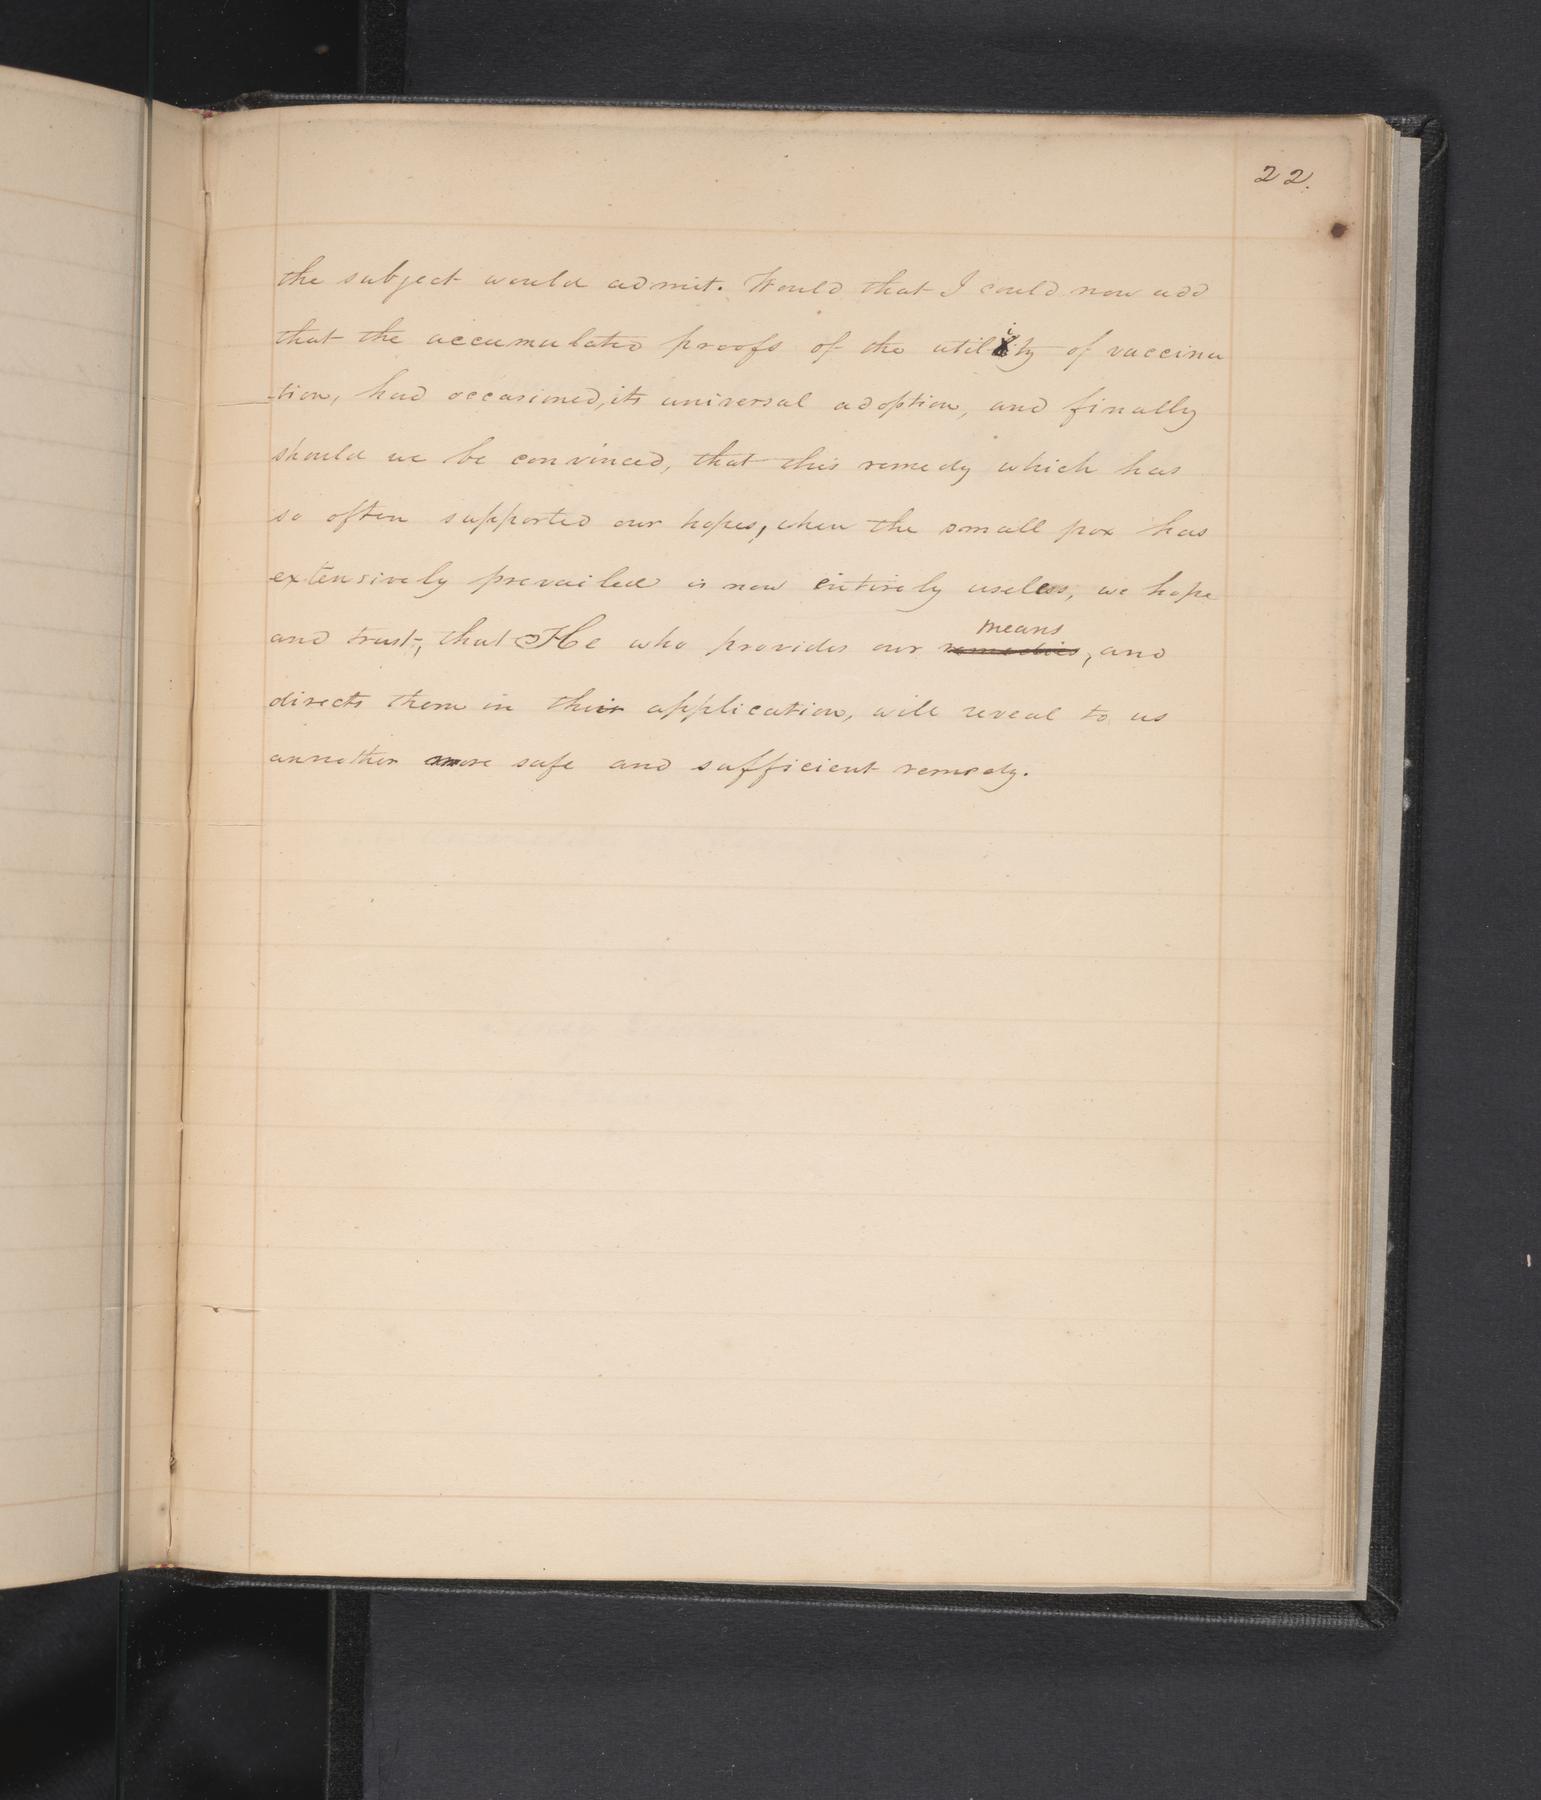 22.
the subject would admit. Would that I could now add
that the accumulated proofs of the utility of vaccina
-tion, had occasioned, its universal adoption, and finally
should we be convinced, that this remedy which has
so often supported our hopes, when the small pox has
extensively prevailed is now entirely useless, we hope
means
and trust, that He who provides our remedies, and
directs them in their application, will reveal to us
annother more safe and sufficient remedy.